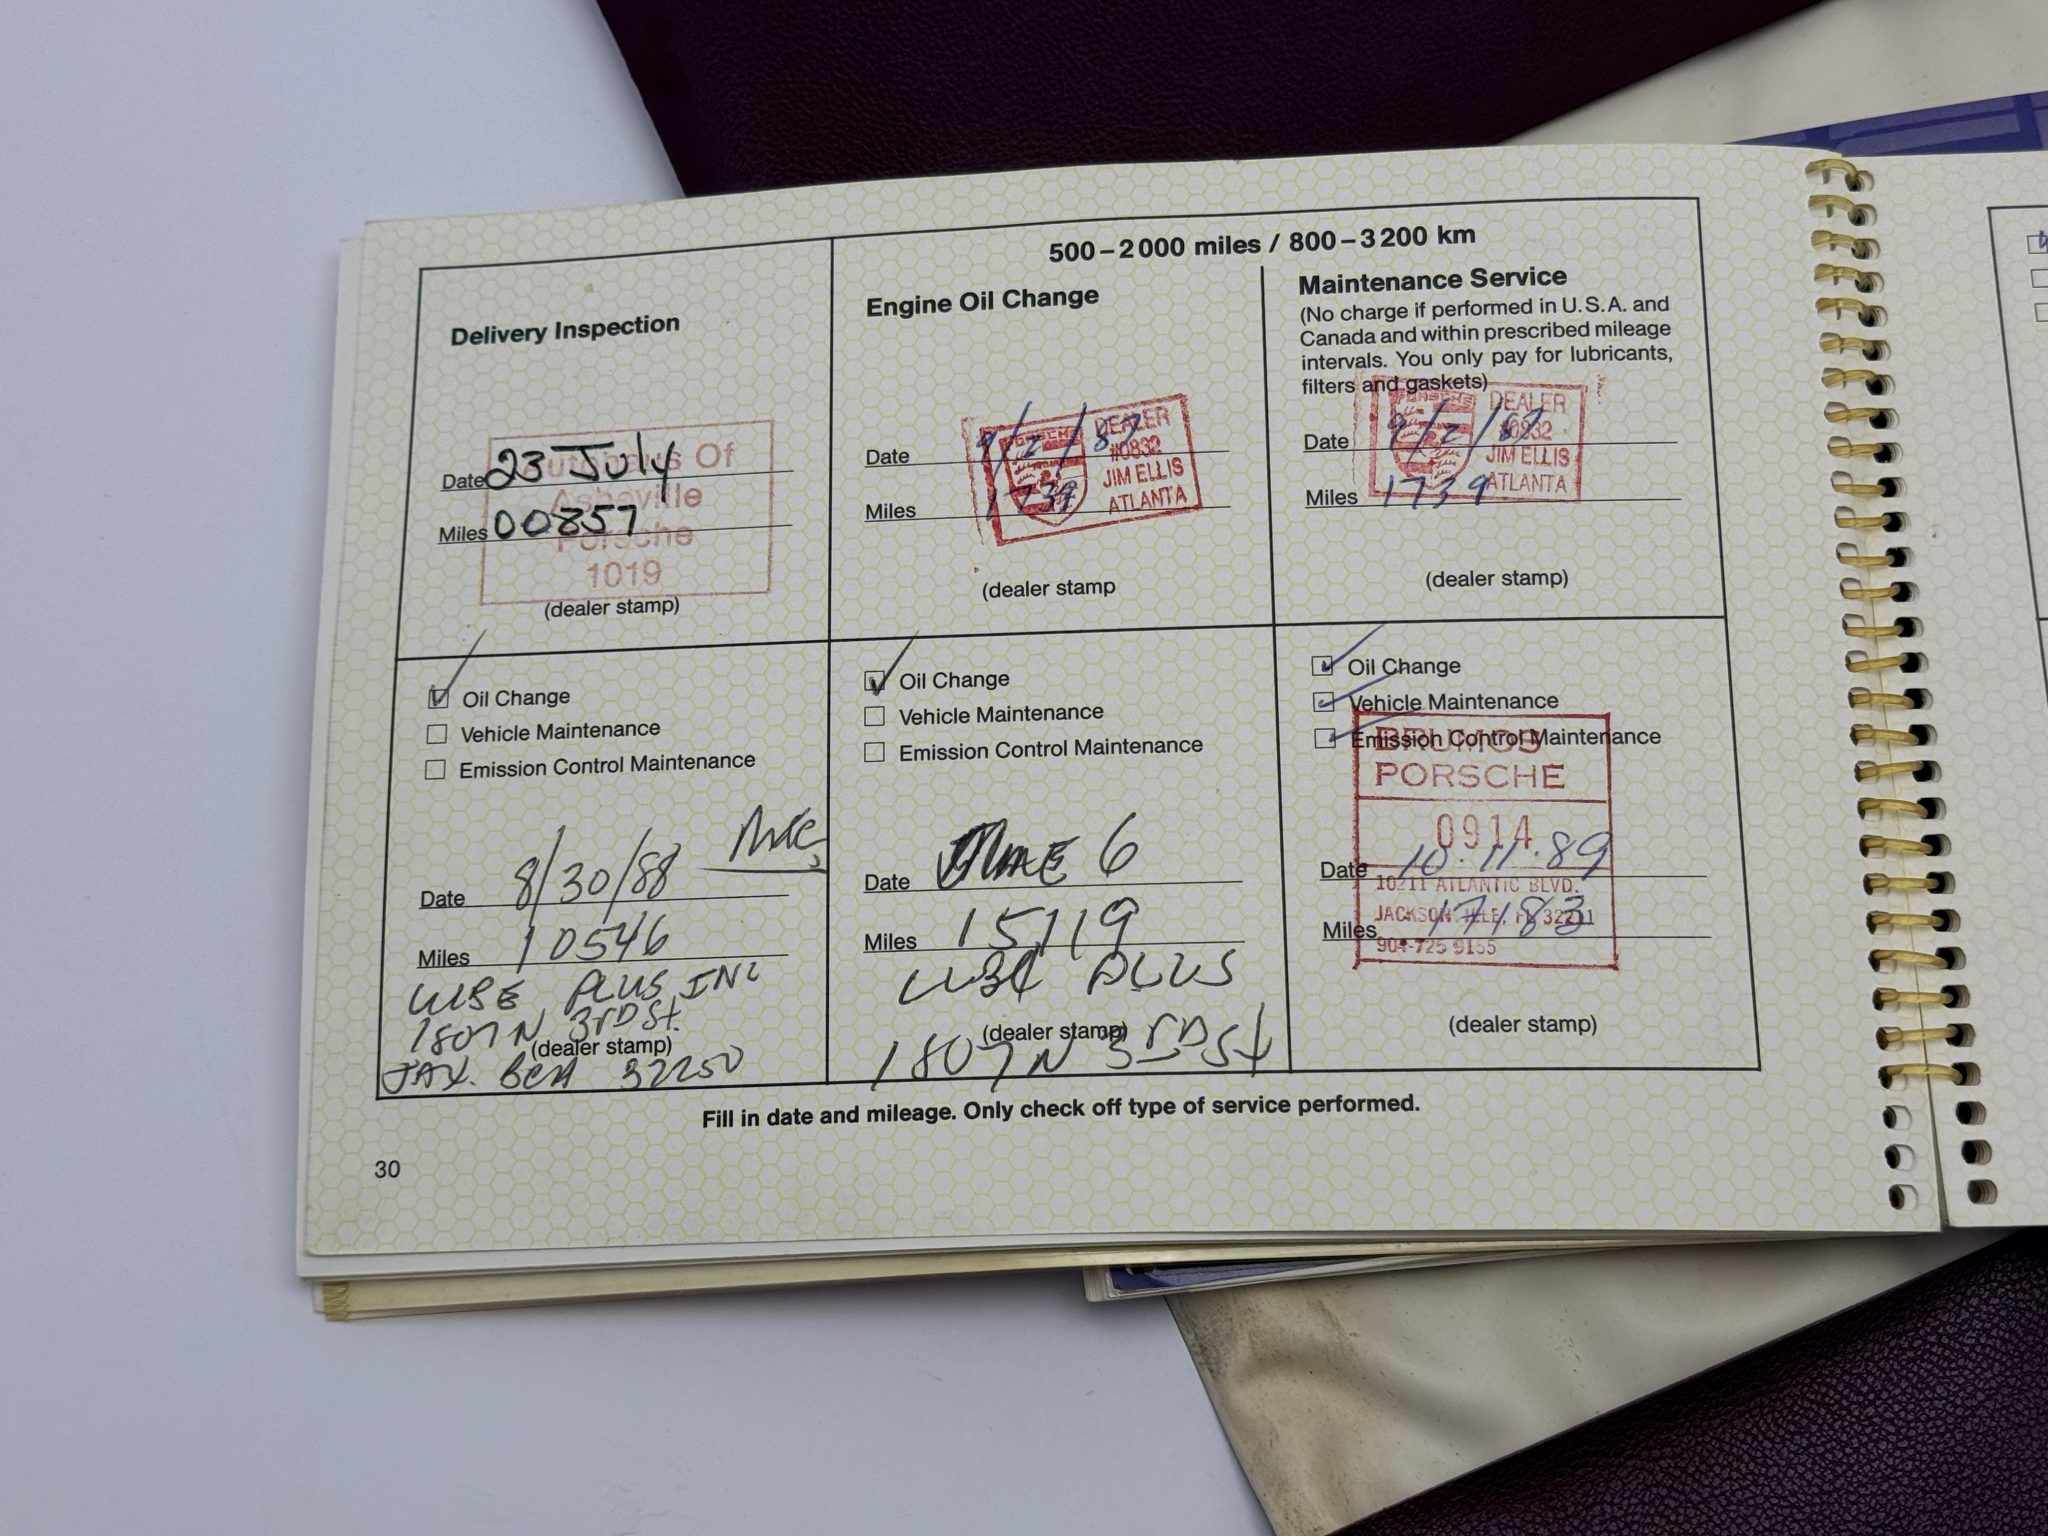 500–2 000 miles / 800–3 200 km
Delivery Inspection
Date 23 July
Miles 00857
Autohaus Of
Asheville
Porsche
1019
(dealer stamp)
Engine Oil Change
Date 9/2/87
Miles 1739
PORSCHE
DEALER
#0832
JIM ELLIS
ATLANTA
(dealer stamp
Maintenance Service
(No charge if performed in U.S.A. and
Canada and within prescribed mileage
intervals. You only pay for lubricants,
filters and gaskets)
Date 9/2/87
Miles 1739
PORSCHE
DEALER
#0832
JIM ELLIS
ATLANTA
(dealer stamp)
Oil Change
Vehicle Maintenance
Emission Control Maintenance
Date 8/30/88
Miles 10546
PLUS INC
1807 N 3rD St.
(dealer stamp)
JAX. BCH 32250
Oil Change
Vehicle Maintenance
Emission Control Maintenance
Date 6
Miles 15119
PLUS
(dealer stamp)
1807 N 3rD St
Oil Change
Vehicle Maintenance
Emission Control Maintenance
BRUMOS
PORSCHE
0914
Date 10.11.89
10211 ATLANTIC BLVD.
JACKSONVILLE, FL 32211
Miles 17183
904-725-9155
(dealer stamp)
Fill in date and mileage. Only check off type of service performed.
30